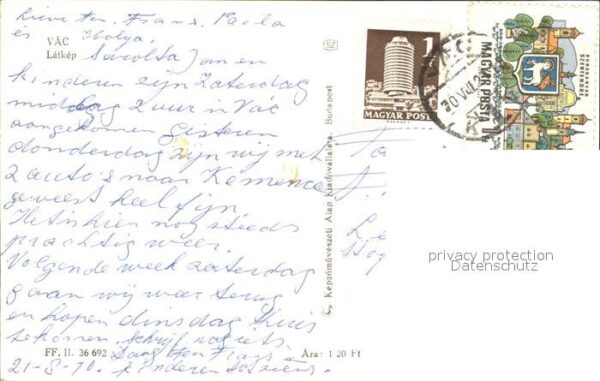 Lieve Frans, Paola
en Ibolya.
VÁC
Látkép
Sarolta, Jan en
kinderen zijn Zaterdag
middag 2 uur in Vác
aangekomen gisteren
donderdag zijn wij met
2 auto's naar Kemence
geweest heel fijn
Het is hier nog steeds
prachtig weer.
Volgende week zaterdag
gaan wij weer terug
en hopen dinsdag thuis
te komen. schrijf nog iets.
FF. II. 36 692
Ára: 1 20 Ft
21-8-70.
kinderen
C. Képzőművészeti Alap Kiadóvállalata, Budapest
SZ
1
MAGYAR POSTA
VÁC
MAGYAR POSTA 1
SZENTENDRE
privacy protection
Datenschutz